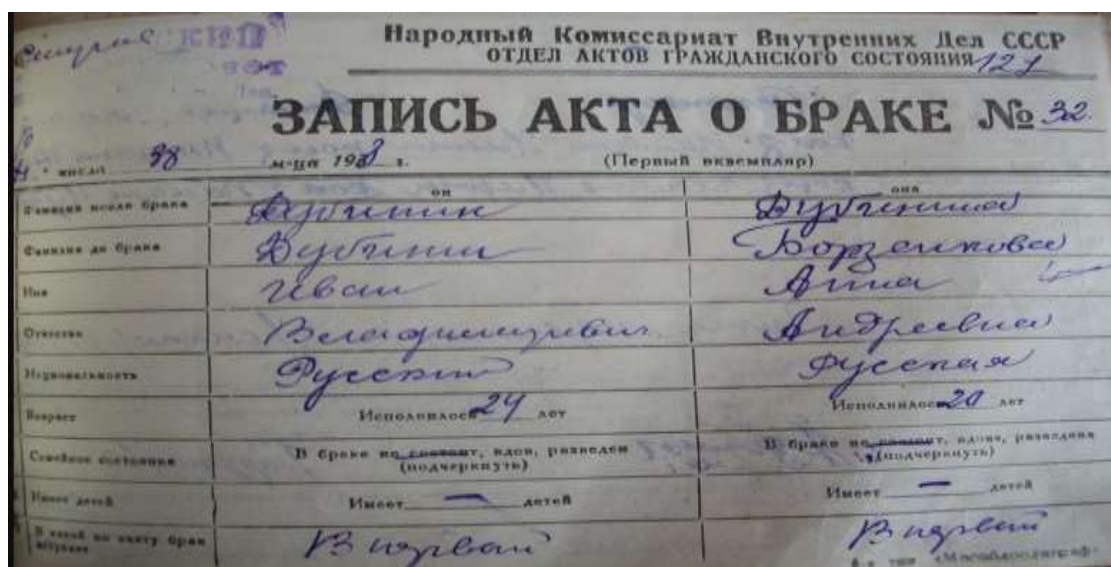 Народный Комиссариат Внутренних Дел СССР
ОТДЕЛ АКТОВ ГРАЖДАНСКОГО СОСТОЯНИЯ 121
ЗАПИСЬ АКТА О БРАКЕ № 32.
числа 38 м-ца 1938 г. (Первый экземпляр)
он она
Фамилия после брака Дубинин Дубинина
Фамилия до брака Дубинин Борзенкова
Имя Иван Анна
Отчество Владимирович Андреевна
Национальность Русский Русская
Возраст Исполнилось 24 лет Исполнилось 20 лет
Семейное состояние В браке не состоит, вдов, разведен В браке не состоит, вдова, разведена
(подчеркнуть) (подчеркнуть)
Имеет детей Имеет — детей Имеет — детей
В какой по счету брак вступает В первый В первый